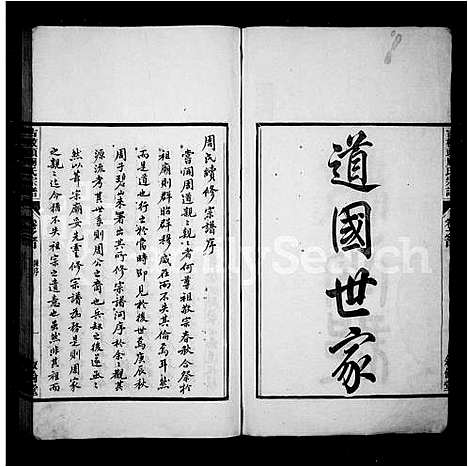 道國世家
周氏續修宗譜序
嘗聞周道親親者何尊祖敬宗春秋合祭於
祖廟則群昭群穆咸在而不失其倫焉耳然
而是道也行之於當時即見於後世焉庚辰秋
周子碧山來署出其所修宗譜問序於余余觀其
源流考其世系則周公之裔也兵燹之後遂亟亟
然以葺宗廟妥先靈修宗譜為務是則周家
之親親迄今猶不失祖宗之遺意也雖然非其祖而
MySearch